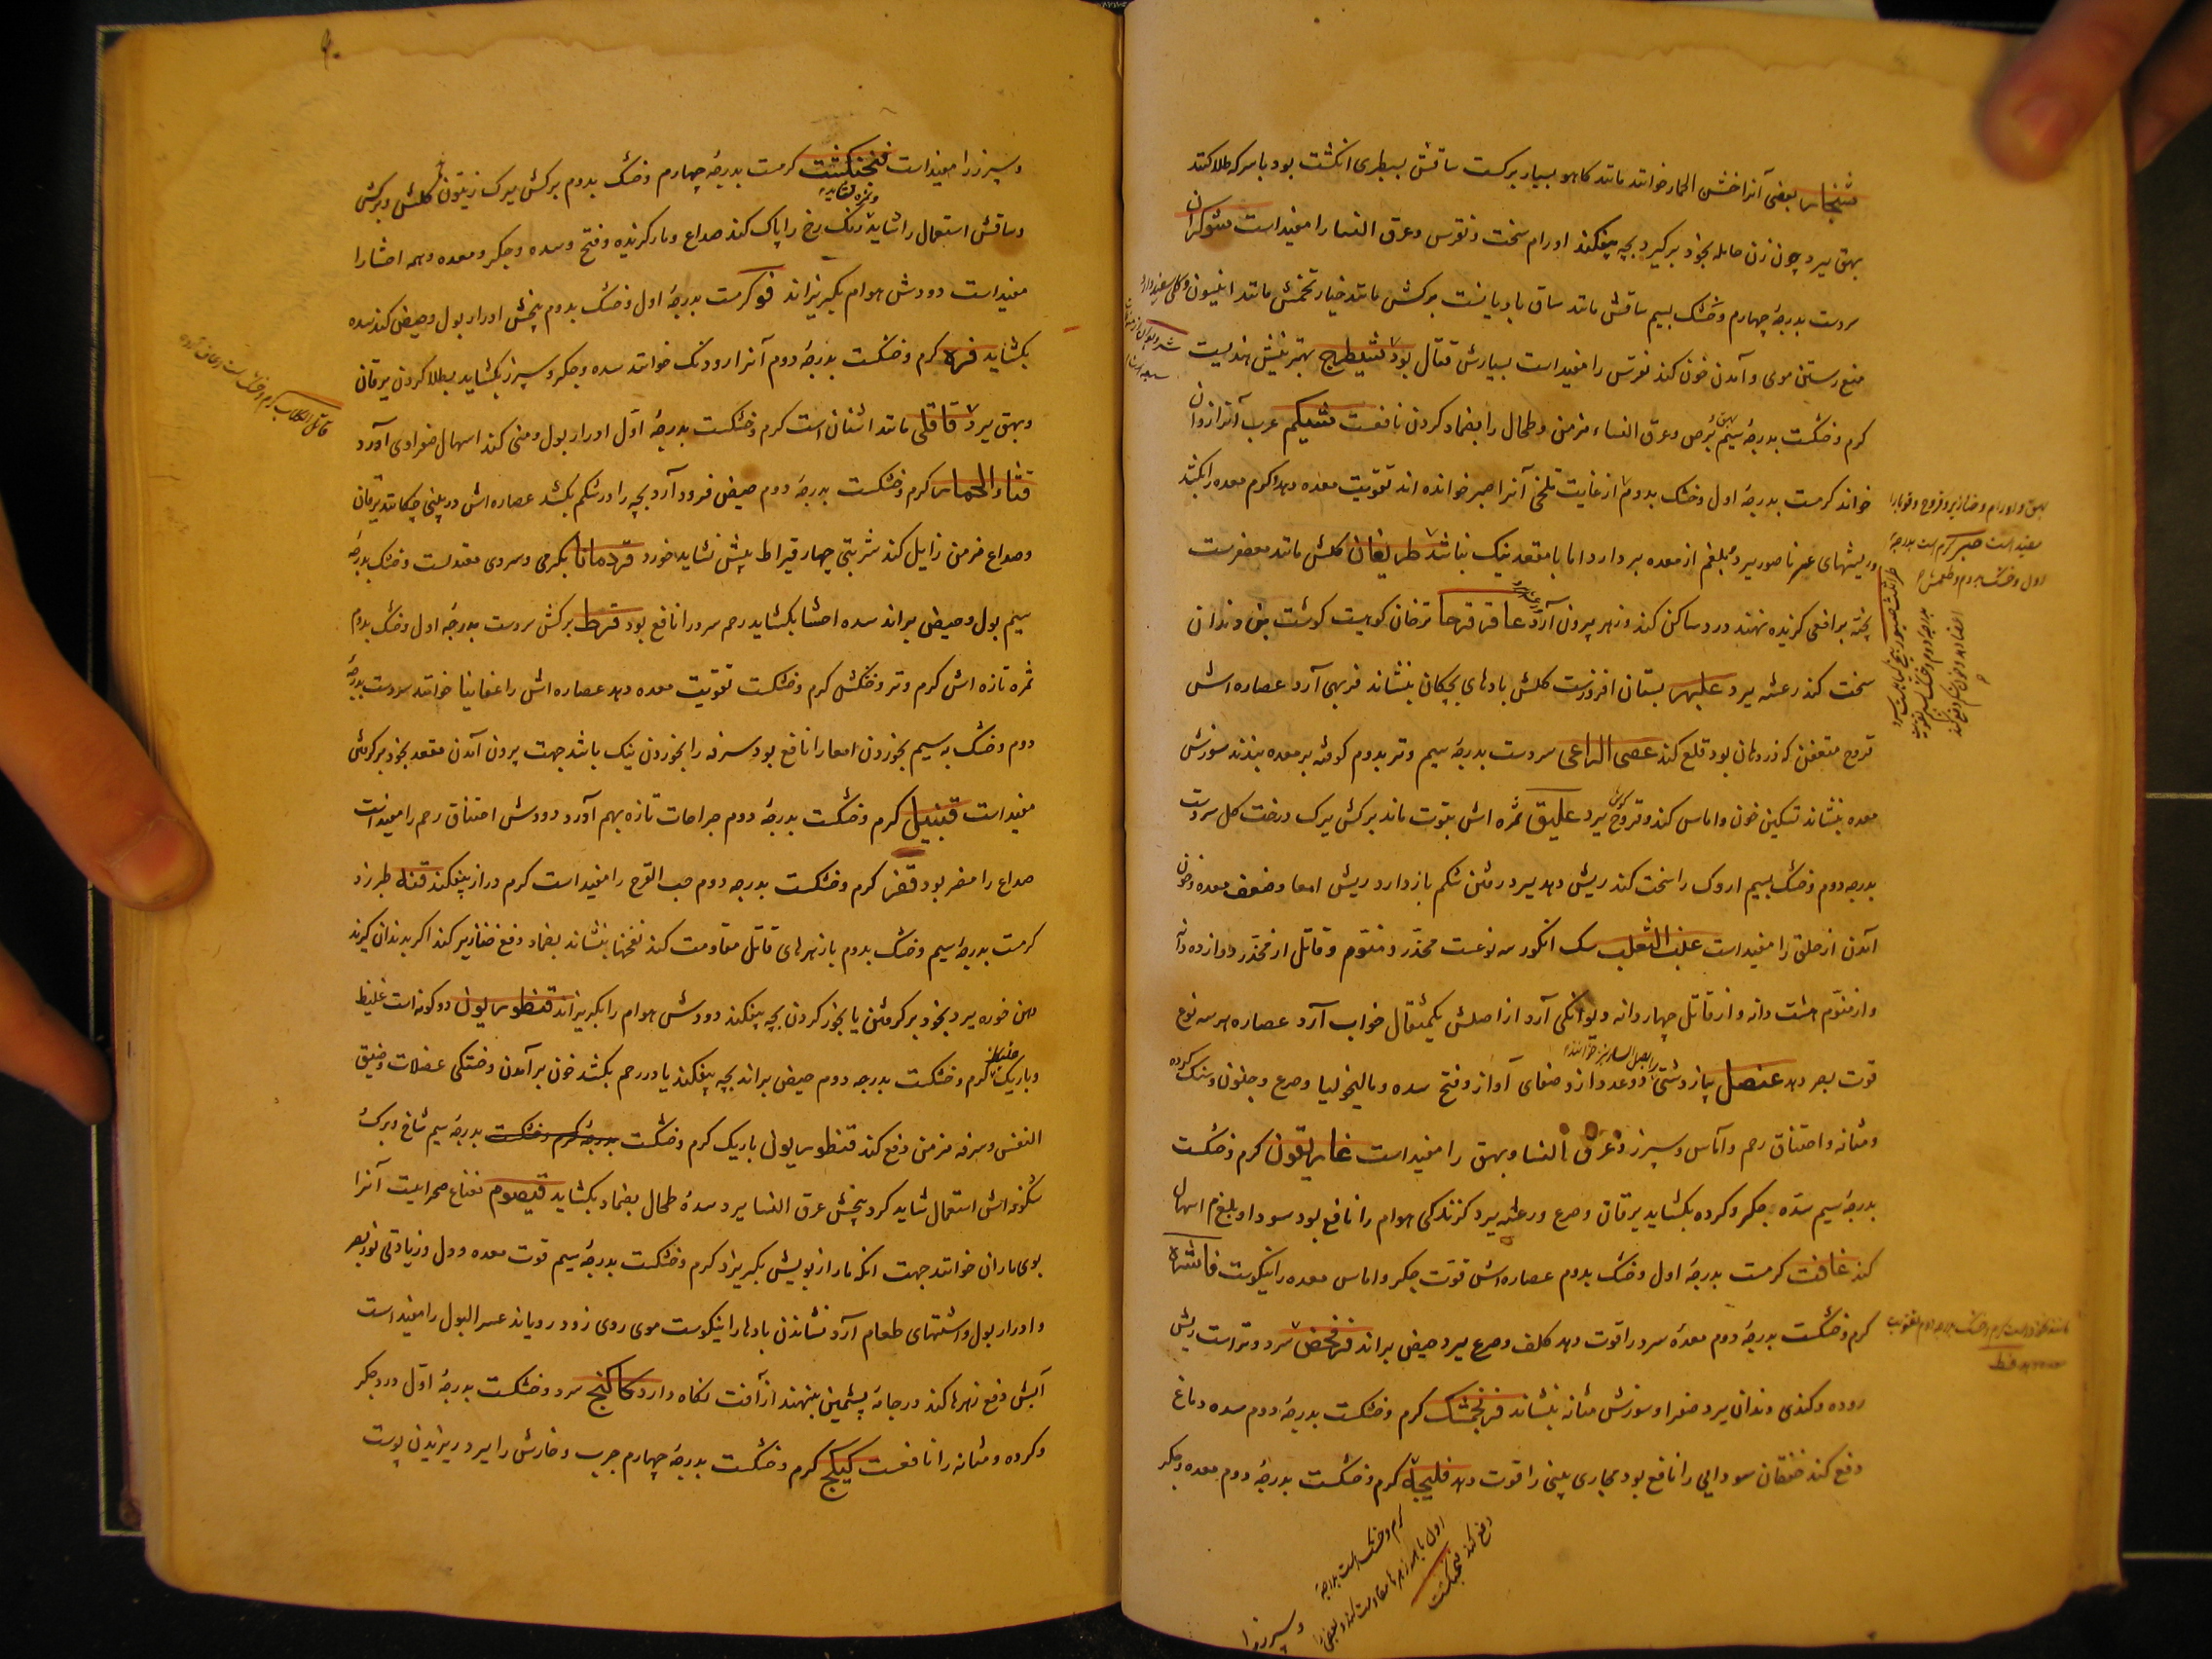 شنجار بعضی آنرا خس الحمار خوانند مانند کاهو بسیار برکست ساقش بسطبری انکشت بود با سرکه طلا کنند
بهق ببرد چون زن حامله بخود برکیرد بچه بیفکند اورام سخت و نقرس و عرق النسا را مفیداست شوکران
سردست بدرجهٔ چهارم و خشک بسیم ساقش مانند ساق بادیانست برکش مانند خیار تخمش مانند انیسون و کلی سفید دارد
منع رستن موی و آمدن خون کند نقرس را مفیداست بسیارش قتال بود شیطرج بهترینش هندیست
کرم و خشکست بدرجهٔ سیم بهق و برص و عرق النساء مزمن و طحال را بضماد کردن نافعست
خواند کرمست بدرجهٔ اول و خشک بدوم از غایت تلخی آنرا صبر خوانده اند تقویت معده دهد و کرم معده را بکشد
وریشهای عسر ناصور ببرد بلغم از معده بردارد اما با مقعد نیک نباشد طریفان کلش مانند معصفرست
پخته بر افعی کزیده نهند درد ساکن کند و زهر بیرون آرد عاقرقرحا ترخان کوهیست کوشت بن دندان
سخت کند رعشه ببرد عبهر بستان افروزست کلش بادهای بچکان بنشاند فربهی آرد عصاره اش
قروح متعفن که در دهان بود قلع کند عصی الراعی سردست بدرجهٔ سیم و تر بدوم کوفته بر معده بندند سوزش
معده بنشاند تسکین خون و اماس کند و قروح کوش ببرد علیق ثمره اش بتوت ماند برکش ببرک درخت کل سردست
بدرجه دوم و خشک بسیم اروک را سخت کند ریش دهد ببرد رفتن شکم باز دارد ریش امعا و ضعف معده و خون
آمدن از حلق را مفیداست عنب الثعلب سک انکور سه نوعست مخدّر و منوّم و قاتل از مخدّر دوازده دانه
واز منوّم هشت دانه و از قاتل چهار دانه دیوانکی آرد از اصلش یکمثقال خواب آرد عصاره هر سه نوع
قوت بصر دهد عنصل پیاز دشتی را بصل الفار نیز خوانند دو عدد از و صفای آواز و فتح سده و مالیخولیا و صرع و جنون و سنک کرده
ومثانه و اختناق رحم و آماس و سپرز و عرق النسا و بهق را مفیداست غاریقون کرم و خشکست
بدرجهٔ سیم سدّه جکر و کرده بکشاید یرقان و صرع و رعشه ببرد کزندکی هوام را نافع بود سودا و بلغم اسهال
کند غافت کرمست بدرجهٔ اول و خشک بدوم عصاره اش قوّت جکر و اماس معده را نیکوست فاشرا
کرم و خشکست بدرجهٔ دوم معدهٔ سرد را قوت دهد کلف و صرع ببرد حیض براند فرفحض سرد و تر است ریش
روده و کندی دندان ببرد صفرا و سوزش مثانه بنشاند فرنجمشک کرم و خشکست بدرجهٔ دوم سده دماغ
دفع کند خفقان سودایی را نافع بود مجاری بینی را قوت دهد فلنجه کرم و خشکست بدرجهٔ دوم معده و جکر
کرم و خشک است بدرجهٔ
اول با همه زهرها مقاومت کند و بعضی را
دفع کند فنجنکشت
و سپرز را
و سپرز را مفیداست فنجنکشت کرمست بدرجهٔ چهارم و خشک بدوم برکش ببرک زیتون کلش و برکش
وساقش استعمال را شاید رنک رخ را پاک کند صداع و مار کزیده و فتح و سده و جکر و معده و همه احشا را
مفیداست دودش هوام بکریزاند فو کرمست بدرجهٔ اول و خشک بدوم بیخش ادرار بول و حیض کند سده
بکشاید فوه کرم و خشکست بدرجهٔ دوم آنرا رودنک خوانند سده و جکر و سپرز بکشاید بطلا کردن یرقان
وبهق ببرد قاقلی مانند اشنان است کرم و خشکست بدرجهٔ اوّل ادرار بول و منی کند اسهال صفراوی آورد
قثاء الحمار کرم و خشکست بدرجهٔ دوم حیض فرود آرد بچه را در شکم بکشد عصاره اش در بینی چکانند یرقان
وصداع مزمن زایل کند شربتی چهار قیراط بیش نشاید خورد قردمانا بکرمی و سردی معتدلست و خشک بدرجهٔ
سیم بول و حیض براند سده احشا بکشاید رحم سرد را نافع بود قرط برکش سردست بدرجهٔ اول و خشک بدوم
ثمره تازه اش کرم و تر و خشکش کرم و خشکست تقویت معده دهد عصاره اش را خوانند سردست بدرجهٔ
دوم و خشک به سیم بخوردن امعا را نافع بود سرفه را بخوردن نیک باشد جهت بیرون آمدن مقعد بخود برکرفتنی
مفیداست قنبیل کرم و خشکست بدرجهٔ دوم جراحات تازه بهم آورد دودش اختناق رحم را مفیداست
صداع را مضر بود قفر کرم و خشکست بدرجه دوم حب القرع را مفیداست کرم دراز بیفکند قنه طرزد
کرمست بدرجهٔ سیم و خشک بدوم با زهرهای قاتل مقاومت کند نفخها بنشاند بضماد دفع خنازیر کند اکر بدندان کیرند
دهن خوره ببرد بخود برکرفتن یا بخور کردن بچه بیفکند دودش هوام را بکریزاند قنطوریون دو کونه است غلیظ
وباریک کرم و خشکست بدرجه دوم حیض براند بچه بیفکند یا در رحم بکشد خون بر آمدن و خستکی عضلات و ضیق
النفس و سرفه مزمن دفع کند قنطوریون باریک کرم و خشکست بدرجهٔ کرم و خشکست بدرجهٔ سیم شاخ و برک
شکوفه اش استعمال شاید کرد بیخش عرق النسا ببرد سدهٔ طحال بضماد بکشاید قیصوم نعناع صحراییت آنرا
بوی ماران خوانند جهت انکه مار از بویش بکریزد کرم و خشکست بدرجهٔ سیم قوت معده و دل و زیادتی نور بصر
وادرار بول و اشتهای طعام آرد نشاندن بادها را نیکوست موی روی زود رویاند عسر البول را مفیداست
آبش دفع زهرها کند در جامهٔ پشمین بنهند از آفت نکاه دارد کاکنج سرد و خشکست بدرجهٔ اوّل درد جکر
وکرده و مثانه را نافعست کبیکج کرم و خشکست بدرجهٔ چهارم جرب و خارش را ببرد ریزیدن پوست